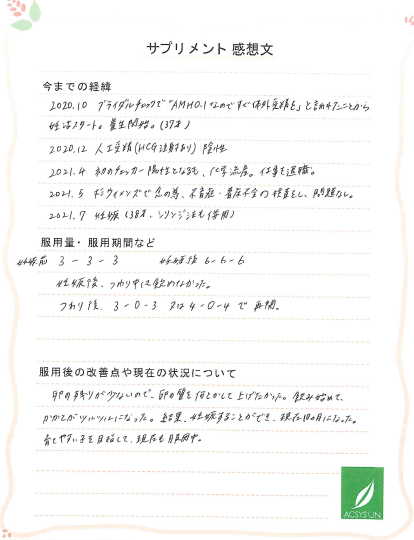 サプリメント 感想文
今までの経緯
2020.10 ブライダルチェックで"AMH0.1なのですぐ体外受精を"と言われたことから
妊活スタート。養生開始。(37才)
2020.12 人工受精(HCG注射あり) 陰性
2021.4 初のチェッカー陽性となるも、化学流産。仕事を退職。
2021.5 ウィメンズで念の為、不育症・着床不全の検査をし、問題なし。
2021.7 妊娠 (38才、シリンジ法も併用)
服用量・服用期間など
妊娠前 3 - 3 - 3 妊娠後 6 - 6 - 6
妊娠後、つわり中は飲めなかった。
つわり後、3 - 0 - 3 又は 4 - 0 - 4 で 再開。
服用後の改善点や現在の状況について
卵の残りが少ないので、卵の質を何とかして上げたかった。飲み始めて、
かかとがツルツルになった。結果、妊娠することができ、現在10ヶ月になった。
育てやすい子を目指して、現在も服用中。
ACSYSUN